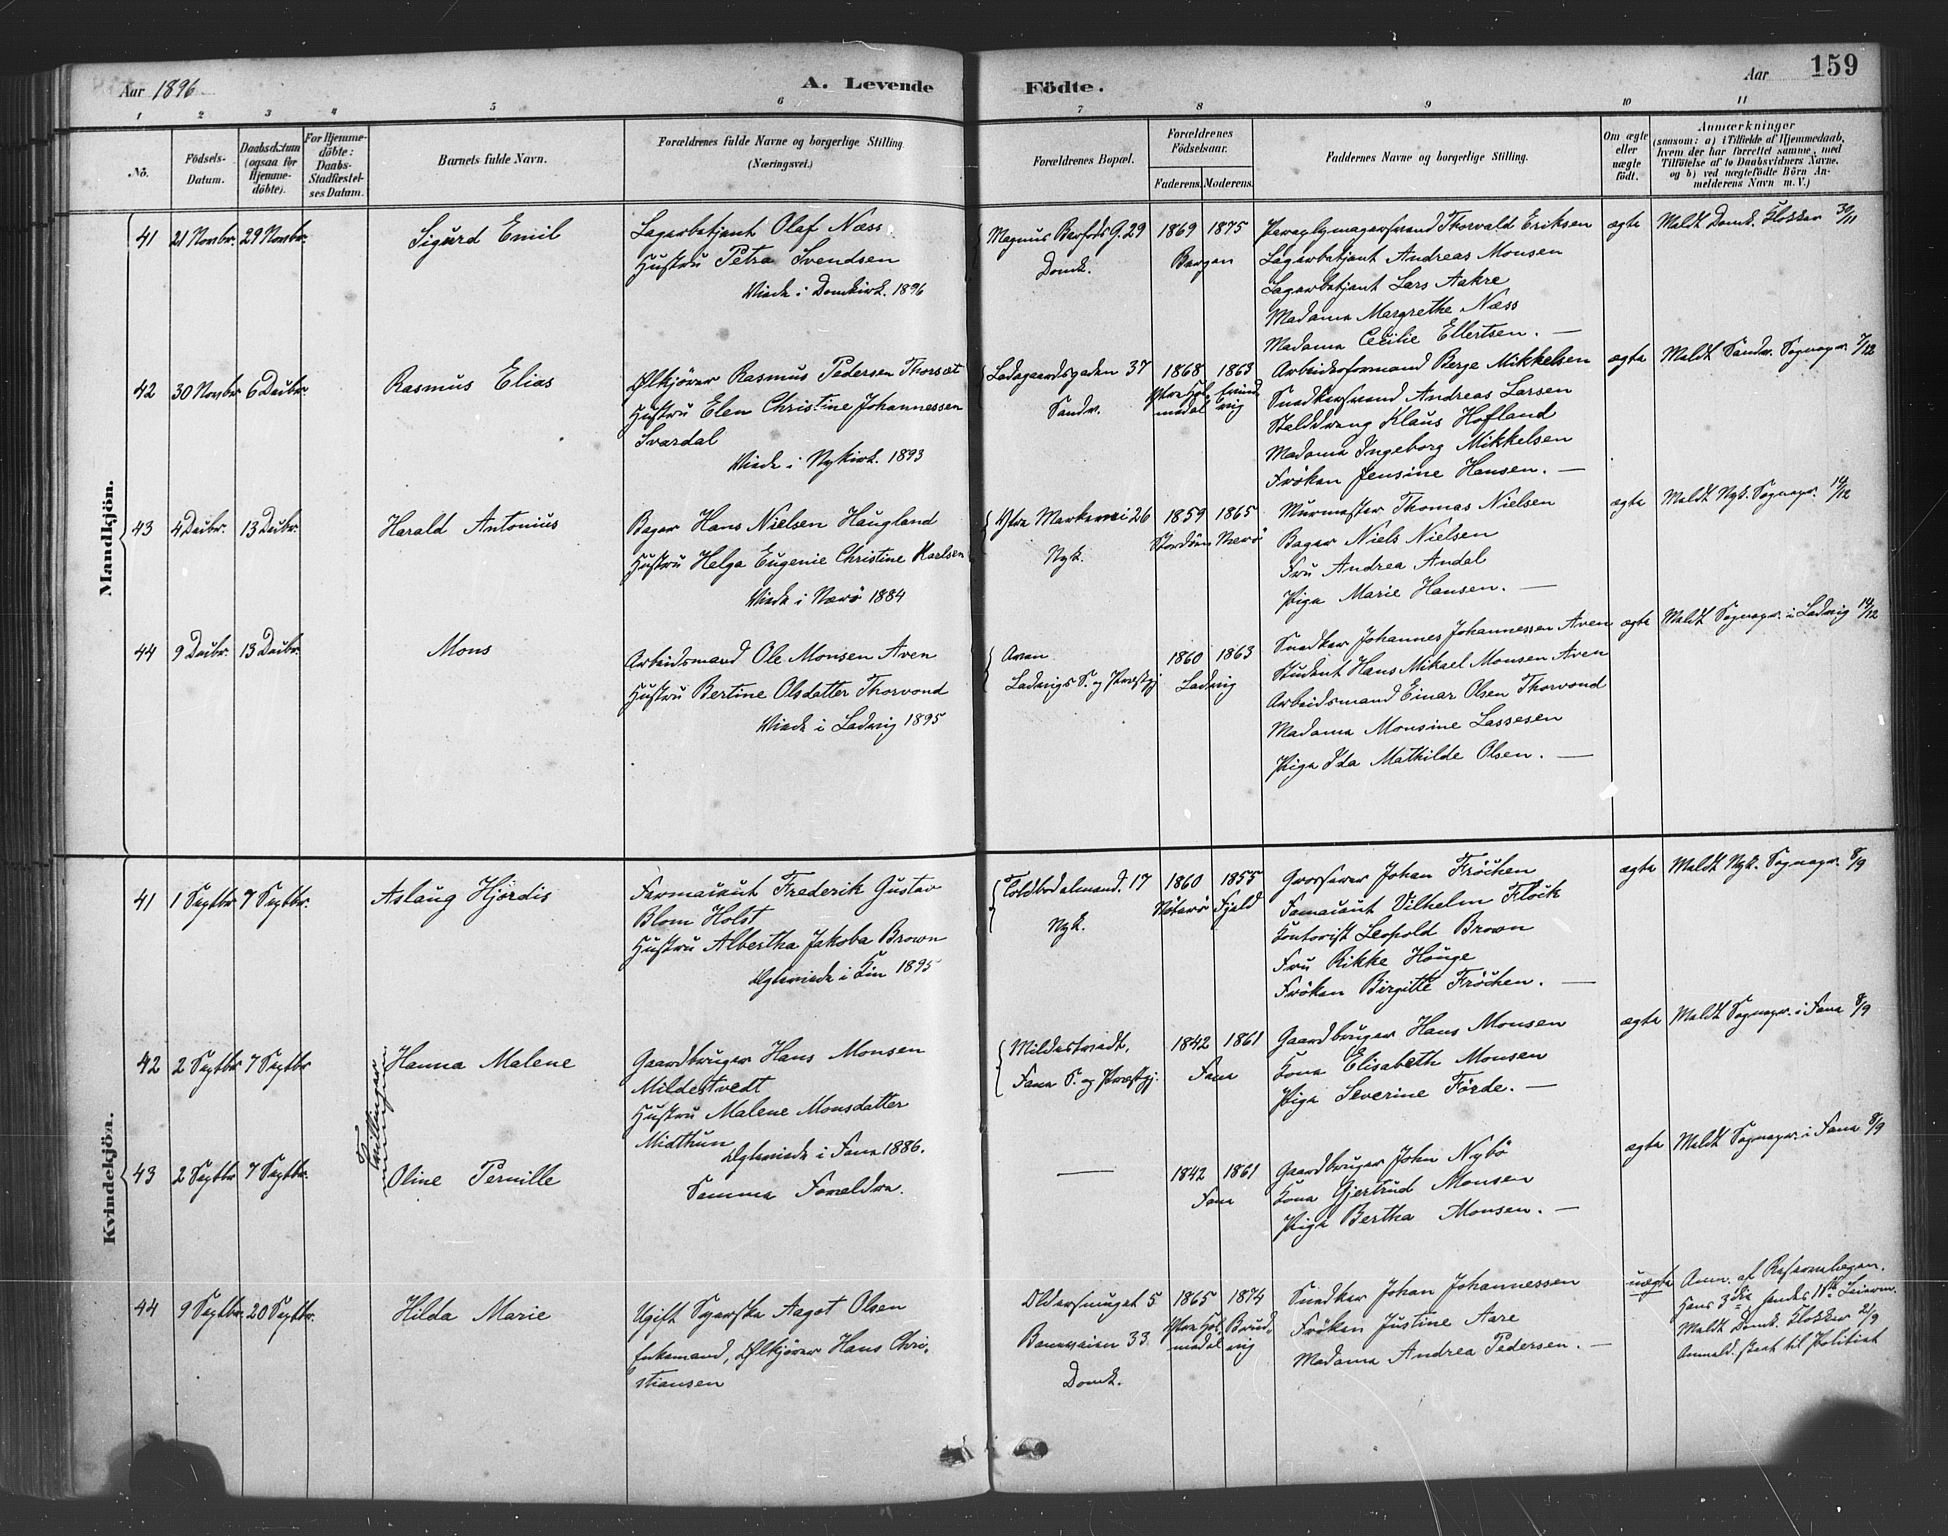 Aar 1896
A. Levende
Födte.
Aar
159
1 2 3 4 5 6 7 8 9 10 11
No.
Födsels-
Datum.
Daabsdatum
(ogsaa for
Hjemme-
döbte).
For Hjemme-
döbte:
Daabs-
Stadfæstel-
ses Datum.
Barnets fulde Navn.
Forældrenes fulde Navne og borgerlige Stilling.
(Næringsvei.)
Forældrenes Bopæl.
Forældrenes
Födselsaar.
Faderens. Moderens.
Faddernes Navne og borgerlige Stilling.
Om ægte
eller
uægte
födt.
Anmærkninger
(saasom: a) i Tilfælde af Hjemmedaab,
hvem der har forrettet samme, med
Tilföielse af to Daabsvidners Navne,
og b) ved uægtefödte Börn An-
melderens Navn m. V.)
Mandkjön.
41 21 Novbr. 29 Novbr.
Sigurd Emil
Lagerbetjent Olaf Næss
Hustru Petra Svendsen
Viede i Domkirk. 1896
Magnus Barfods G. 29
Domk.
1869 1875
Bergen
Thorvald Eriksen
Lagerbetjent Andreas Monsen
Lagerbetjent Lars Aakre
Madame Margrethe Næss
Madame Cecilie Ellertsen. —
ægte
Meldt Domk. Klokker 30/11
42 30 Novbr. 6 Decbr.
Rasmus Elias
Ølkjører Rasmus Pedersen Thorsæt
Hustru Elen Christine Johannessen
Svardal
Viede i Nykirk. 1893
Ladegaardsgaden 37
Sandv.
1868 1863
Ytre Hol-
medal
Arbeidsformand Berge Mikkelsen
Snedkersvend Andreas Larsen
Stalddreng Klaus Hofland
Madame Ingeborg Mikkelsen
Frøken Jensine Hansen. —
ægte
Meldt Sandv. Sognepr. 7/12
43 4 Decbr. 13 Decbr.
Harald Antonius
Bager Hans Nielsen Haugland
Hustru Helga Eugenie Christine Karlsen
Viede i Nærö 1884
Ytre Markevei 26
Nyk.
1859 1865
Stordöen Nærö
Murmester Thomas Nielsen
Bager Niels Nielsen
Fru Andrea Andal
Pige Marie Hansen. —
ægte
Meldt Nyk. Sognepr. 14/12
44 9 Decbr. 13 Decbr.
Mons
Arbeidsmand Ole Monsen Aven
Hustru Bertine Olsdatter Thorvond
Viede i Ladvig 1895
Aven
Ladvigs S. og Præstgj.
1860 1863
Ladvig
Snedker Johannes Johannessen Aven
Student Hans Mikael Monsen Aven
Arbeidsmand Einar Olsen Thorvond
Madame Monsine Lassesen
Pige Ida Mathilde Olsen. —
ægte
Meldt Sognepr. i Ladvig 14/12
Kvindekjön.
41 1 Septbr. 7 Septbr.
Aslaug Hjördis
Formand Frederik Gustav
Blom Holst
Hustru Albertha Jakoba Brown
Ægteviede i Kin 1895
Toldbodalmend. 17
Nyk.
1860 1855
Nöterö Fjeld
Grosserer Johan Fröchen
Vilhelm Flöck
Kontorist Leopold Brown
Fru Rikke Hauge
Frøken Birgitte Fröchen. —
ægte
Meldt Nyk. Sognepr. 8/9
Tvillinger
42 2 Septbr. 7 Septbr
Hanna Malene
Gaardbruger Hans Monsen
Mildestvedt
Hustru Malene Monsdatter
Midthun
Ægteviede i Fana 1886.
Mildestvedt,
Fana S. og Præstgj.
1842 1861
Fana
Gaardbruger Hans Monsen
Kone Elisabeth Monsen
Pige Severine Förde. —
ægte
Meldt Sognepr. i Fana 8/9
43 2 Septbr. 7 Septbr.
Oline Pernille
Samme Forældre.
—
1842 1861
Fana
Gaardbruger John Nybö
Kone Gjertrud Monsen
Pige Bertha Monsen. —
ægte
Meldt Sognepr. i Fana 8/9
44 9 Septbr. 20 Septbr.
Hilda Marie
Ugift Syerske Aagot Olsen
Enkemand, Ølkjører Hans Chri-
stiansen
Oldersmuget 5
Baneveien 33
Domk.
1865 1874
Ytre Hol-
medal
Snedker Johan Johannessen
Frøken Justine Aare
Madame Andrea Pedersen. —
uægte
Anm. af
Hans 3die hendes 1ste Leierm.
Meldt Domk. Klokker 21/9
Anmeld. sendt til Politiet